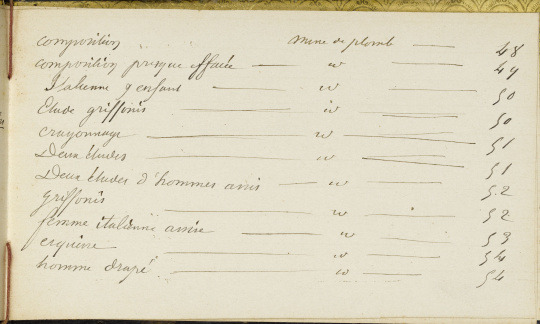 composition mine de plomb 48
composition presque effacée id 49
Italienne & enfant id 50
Etude griffonis id 50
crayonnage id 51
Deux études id 51
Deux études d'hommes assis id 52
griffonis id 52
femme italienne assise id 53
esquisse id 54
homme drapé id 54